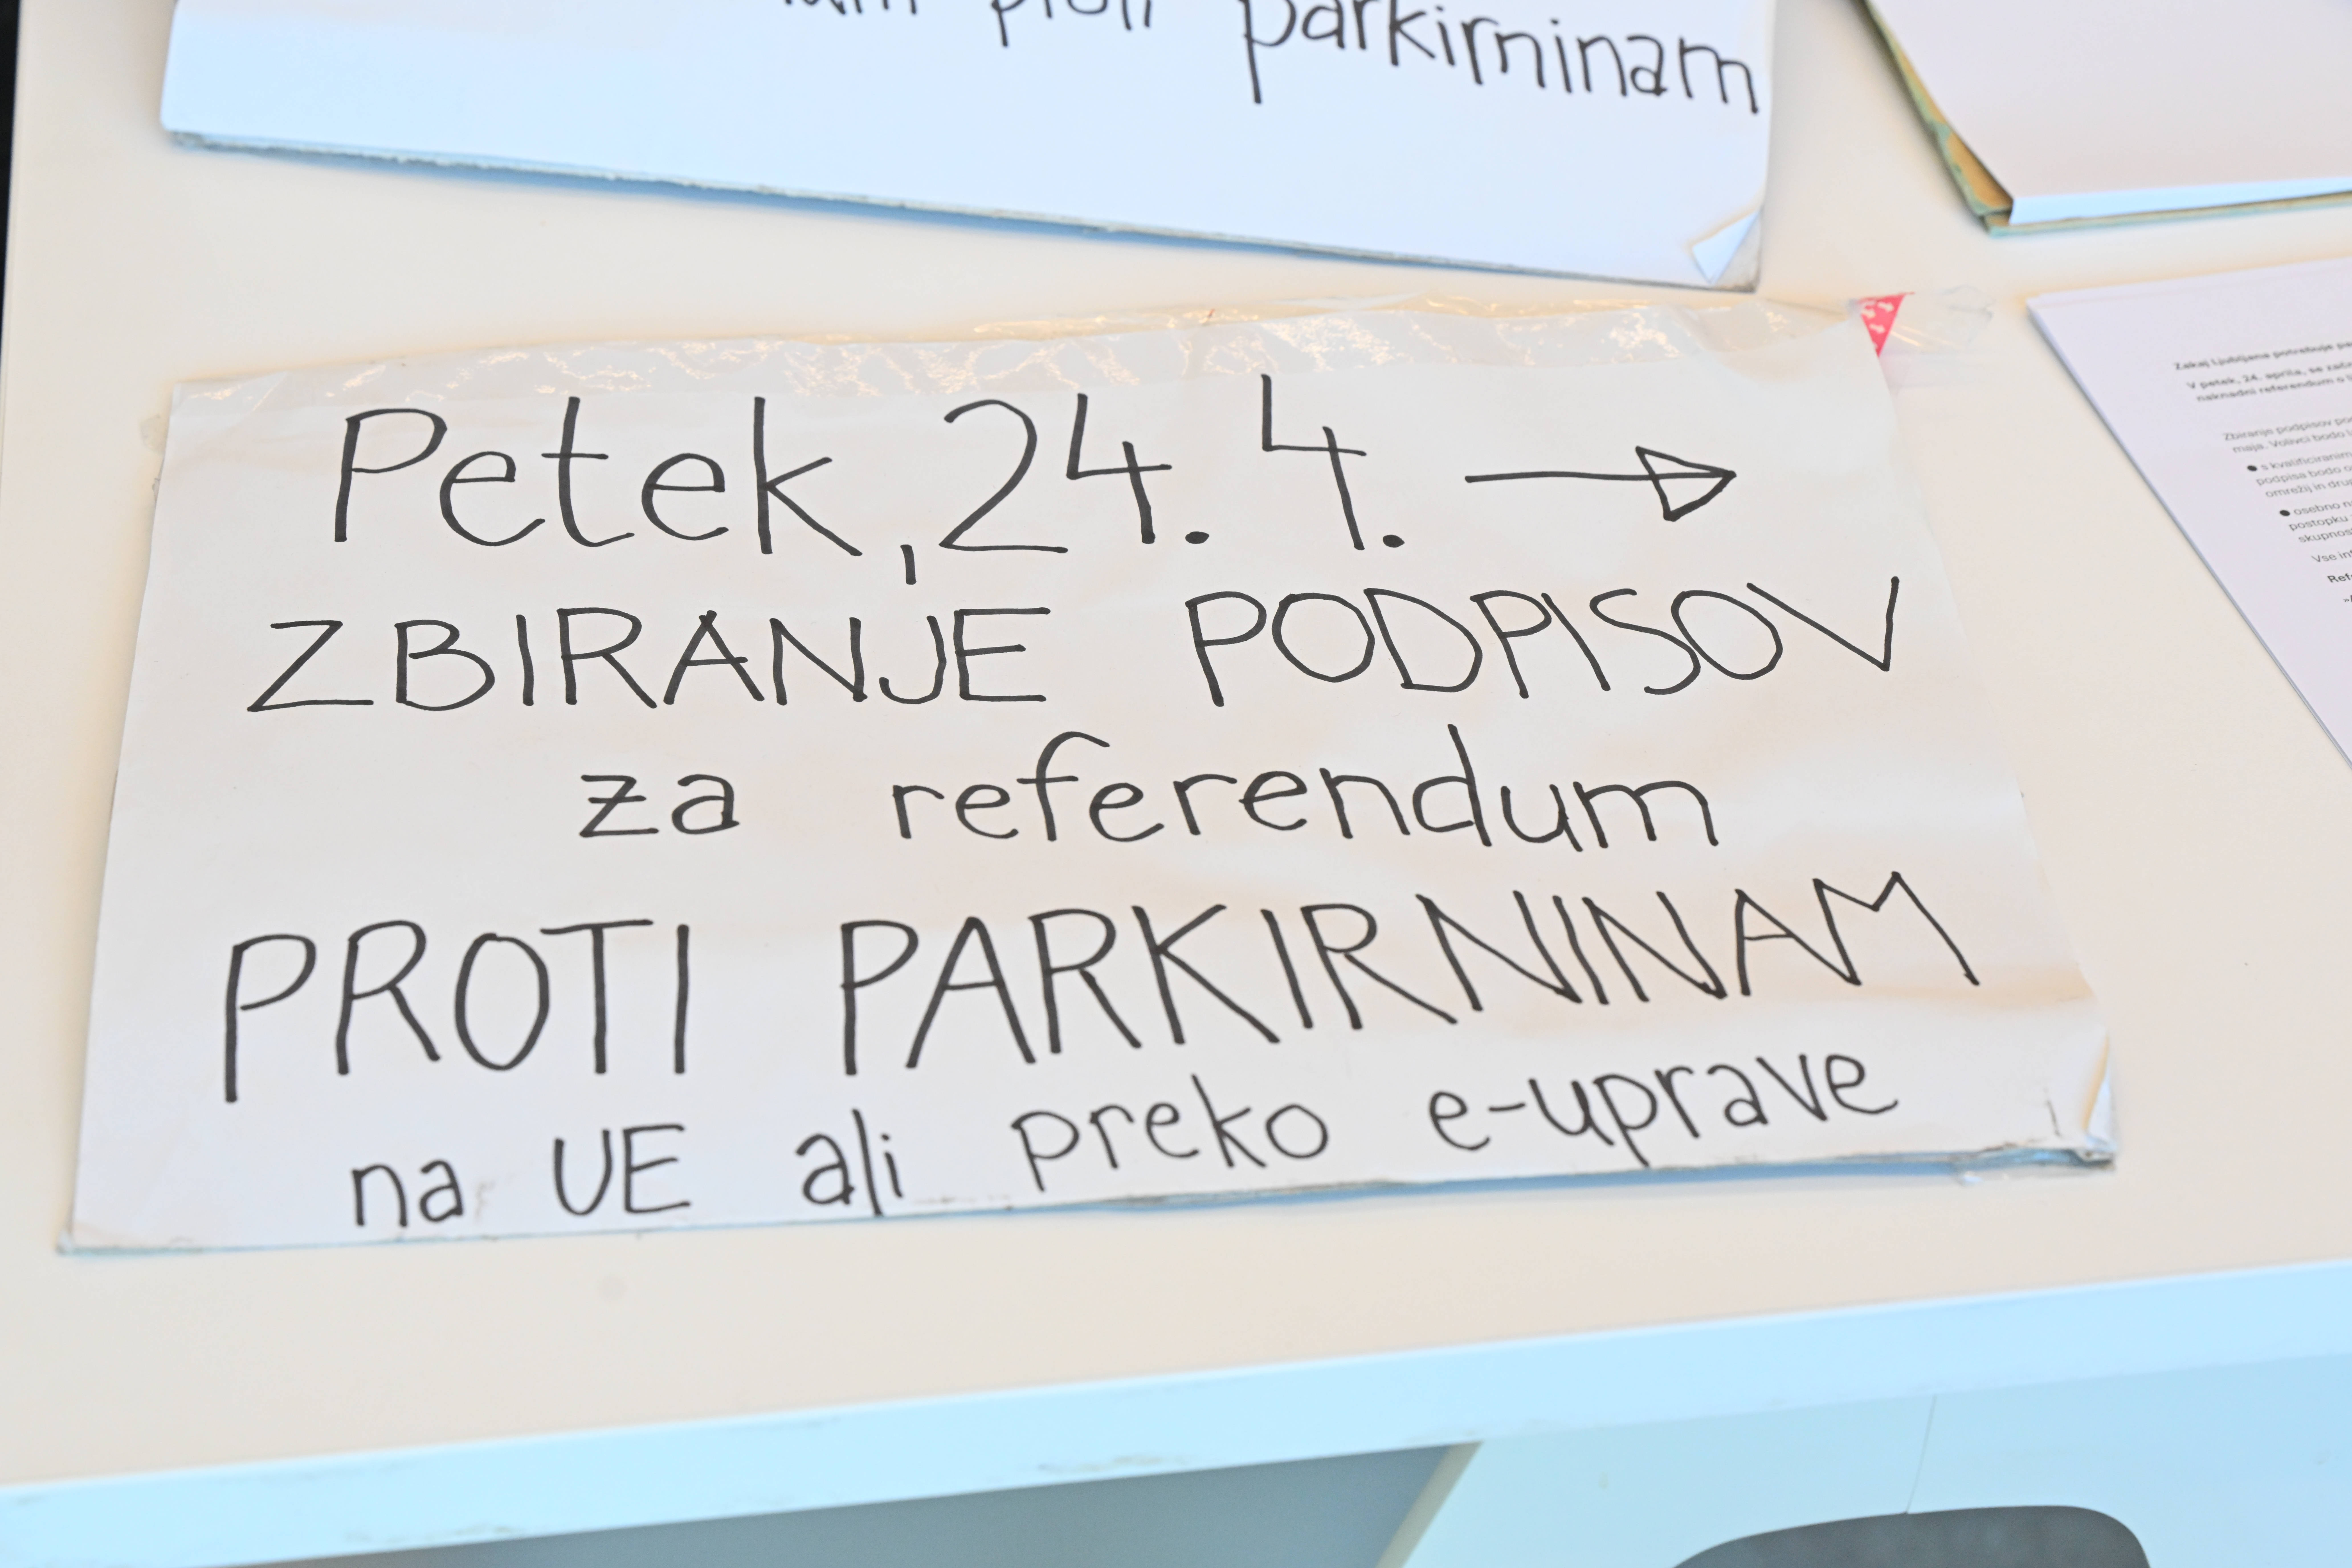 proti parkirninam
Petek, 24. 4. →
ZBIRANJE PODPISOV
za referendum
PROTI PARKIRNINAM
na UE ali preko e-uprave
Zakaj Ljubljana potrebuje
V petek, 24. aprila, se
naknadni referendum o
Zbiranje podpisov
maja. Volivci bodo
● s kvalificiranim
podpisa bodo
omrežij in
● osebno
postopku
Vse